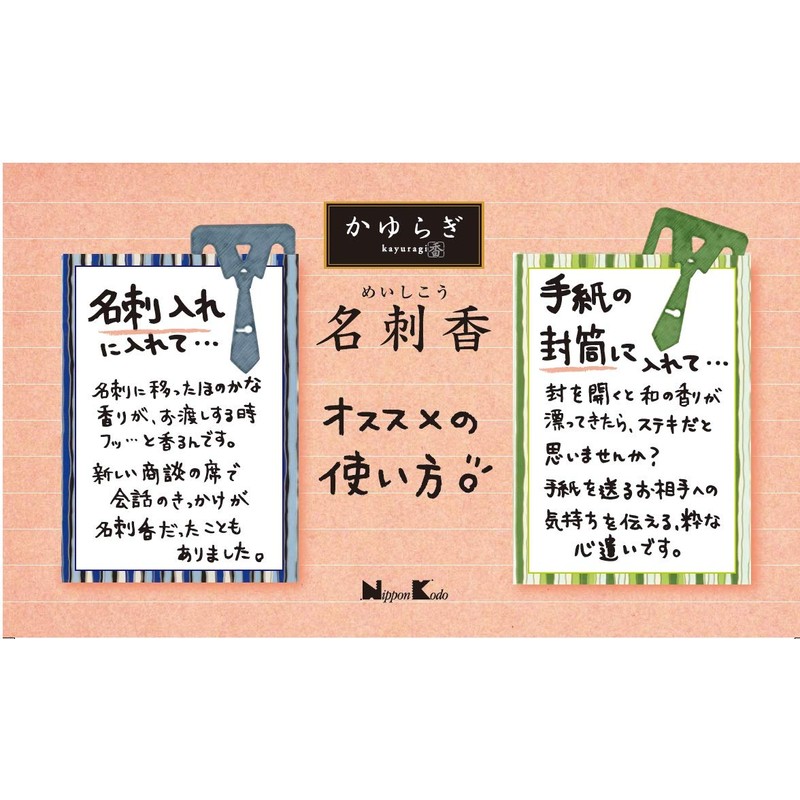 かゆらぎ
kayuragi 香
めいしこう
名刺香
オススメの
使い方
名刺入れ
に入れて…
名刺に移ったほのかな
香りが、お渡しする時
フッ…と香るんです。
新しい商談の席で
会話のきっかけが
名刺香だったことも
ありました。
手紙の
封筒に入れて…
封を開くと和の香りが
漂ってきたら、ステキだと
思いませんか?
手紙を送るお相手への
気持ちを伝える、粋な
心遣いです。
Nippon Kodo